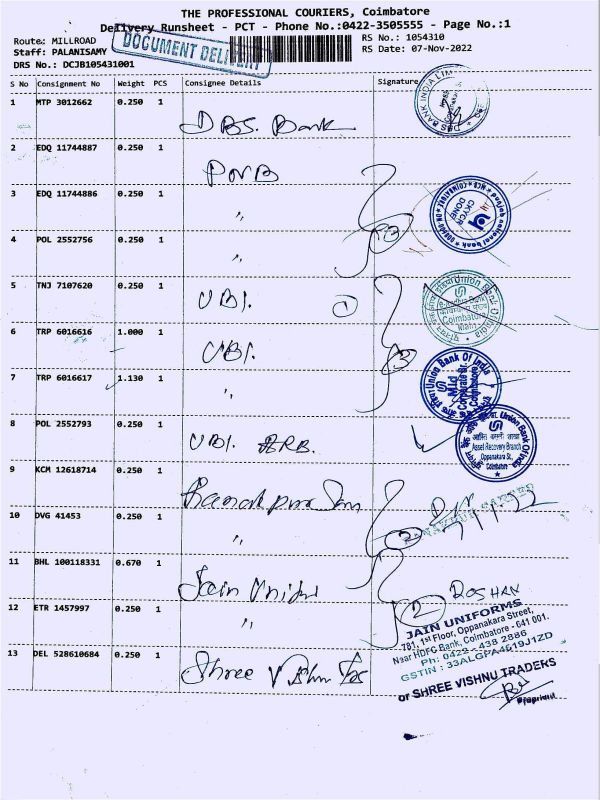 THE PROFESSIONAL COURIERS, Coimbatore
Delivery Runsheet - PCT - Phone No.:0422-3505555 - Page No.:1
Route: MILLROAD
RS No.: 1054310
Staff: PALANISAMY
RS Date: 07-Nov-2022
DRS No.: DCJB105431001
DOCUMENT DELIVERY
S No Consignment No Weight PCS Consignee Details Signature
1 MTP 3012662 0.250 1 DBS. Bank
DBS BANK INDIA LIM
2 EDQ 11744887 0.250 1 PNB
3 EDQ 11744886 0.250 1 "
3
punjab national bank
CKYCR DONE
4 POL 2552756 0.250 1 "
5 TNJ 7107620 0.250 1 UBI. 1
Union Bank Of India
Coimbatore
Main
6 TRP 6016616 1.000 1 UBI.
3
7 TRP 6016617 1.130 1 "
Union Bank Of India
Mid Corporate
Coimbatore
8 POL 2552793 0.250 1 UBI. ARB.
Union Bank Of India
Asset Recovery Branch
Oppanakara St.,
Coimbatore
9 KCM 12618714 0.250 1
10 DVG 41453 0.250 1 "
2
11 BHL 100118331 0.670 1 Jain Unifor
ROSHAN
12 ETR 1457997 0.250 1 "
2
JAIN UNIFORMS
781, 1st Floor, Oppanakara Street,
Near HDFC Bank, Coimbatore - 641 001.
Ph: 0422 - 438 2886
GSTIN : 33ALGPA4619J1ZD
13 DEL 528610684 0.250 1 Shree Vishnu
or SHREE VISHNU TRADERS
Proprietor